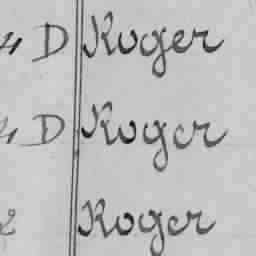 D Roger
D Roger
Roger